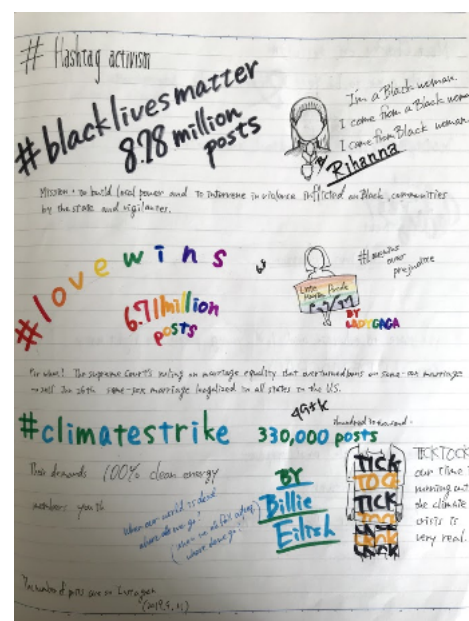 # Hashtag activism
#blacklivesmatter
8.78 million
posts
I'm a Black woman.
I come from a Black woman
I come from Black woman.
Rihanna
Mission: to build local power and to intervene in violence inflicted on Black communities
by the state and vigilantes.
#lovewins
6.71 million
posts
#lovewins
over
prejudice
Little
BY
LADYGAGA
For what? The supreme court's ruling on marriage equality that on same-sex marriage
same-sex marriage legalized in all states in the U.S.
#climatestrike 330,000 posts
hundred thousand.
Their demands 100% clean energy
members youth
When our world is dead
where do we go?
where do we go?
BY
Billie
Eilish
TICK
TOCK
TICK
TOCK
TICKTOCK
our time is
running out
the climate
crisis is
very real.
The number of posts are on